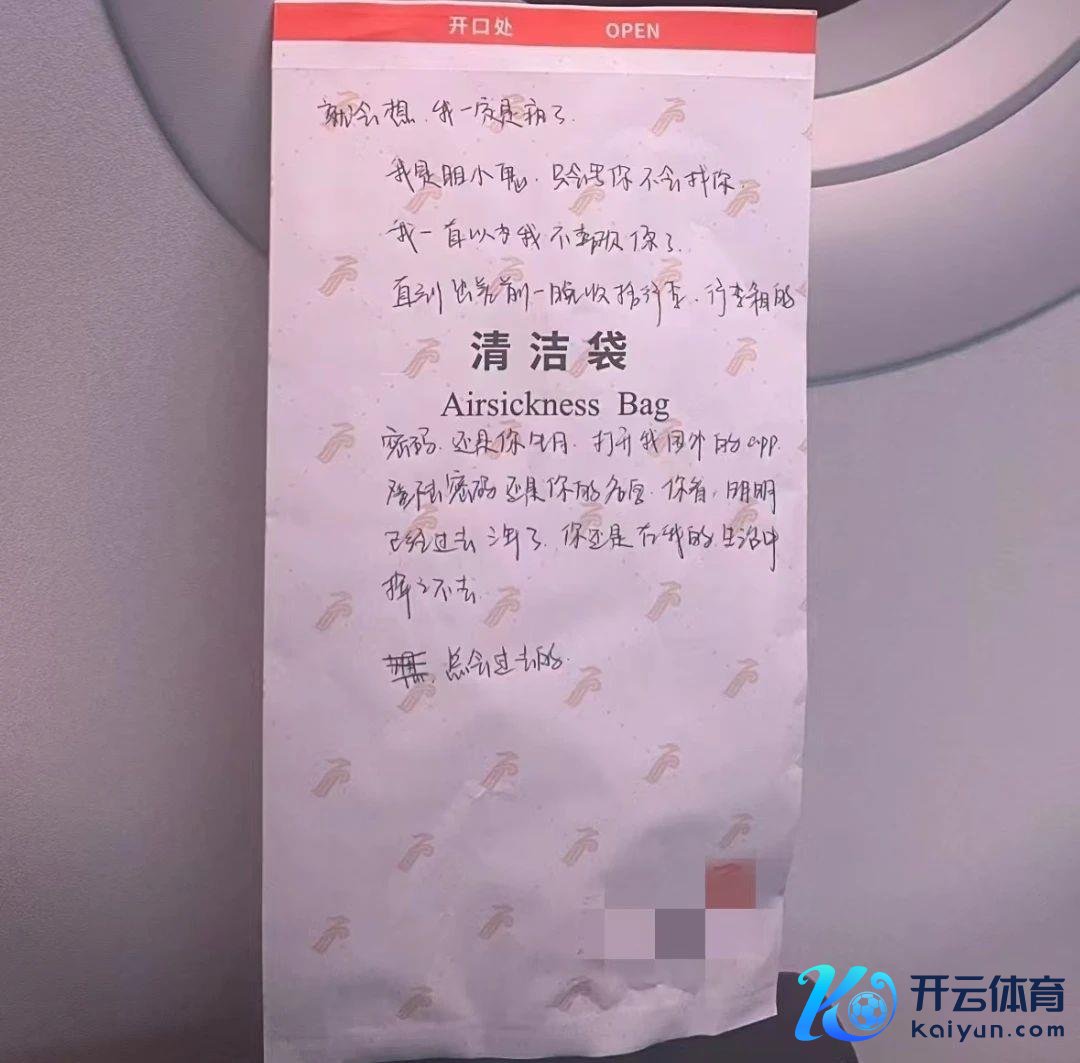 开口处 OPEN
就会想,我一定是病了.
我是胆小鬼.只会想你不会找你.
我一直以为我不喜欢你了.
直到出差前一晚收拾行李.行李箱的
清洁袋
Airsickness Bag
密码.还是你生日.打开我国外的app.
登陆密码还是你的名字.你看,明明
已经过去三年了.你还是在我的生活中
挥之不去.
总会过去的.
开云体育
kaiyun.com